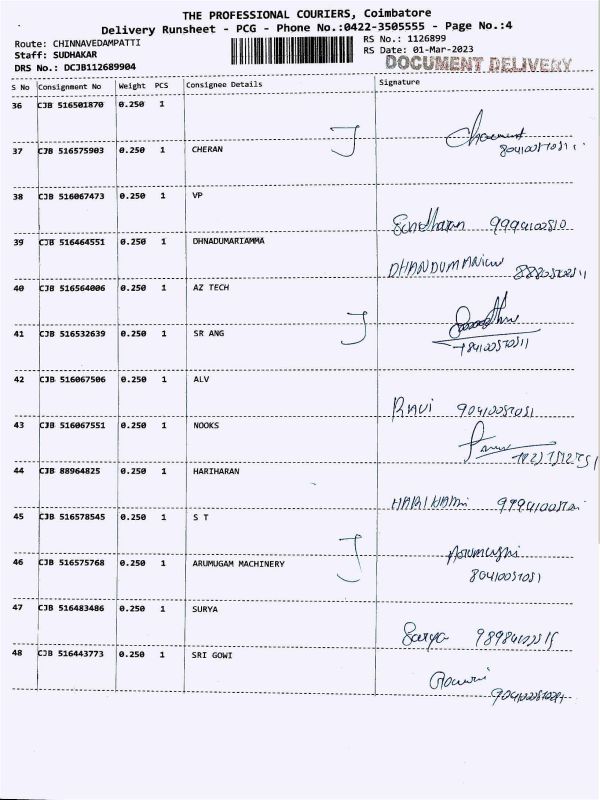 THE PROFESSIONAL COURIERS, Coimbatore
Delivery Runsheet - PCG - Phone No.:0422-3505555 - Page No.:4
Route: CHINNAVEDAMPATTI
Staff: SUDHAKAR
DRS No.: DCJB112689904
RS No.: 1126899
RS Date: 01-Mar-2023
DOCUMENT DELIVERY
S No Consignment No Weight PCS Consignee Details Signature
36 CJB 516501870 0.250 1
37 CJB 516575903 0.250 1 CHERAN
38 CJB 516067473 0.250 1 VP
39 CJB 516464551 0.250 1 DHNADUMARIAMMA
40 CJB 516564006 0.250 1 AZ TECH
41 CJB 516532639 0.250 1 SR ANG
42 CJB 516067506 0.250 1 ALV
Ravi
43 CJB 516067551 0.250 1 NOOKS
44 CJB 88964825 0.250 1 HARIHARAN
45 CJB 516578545 0.250 1 S T
46 CJB 516575768 0.250 1 ARUMUGAM MACHINERY
47 CJB 516483486 0.250 1 SURYA
Surya
48 CJB 516443773 0.250 1 SRI GOWI